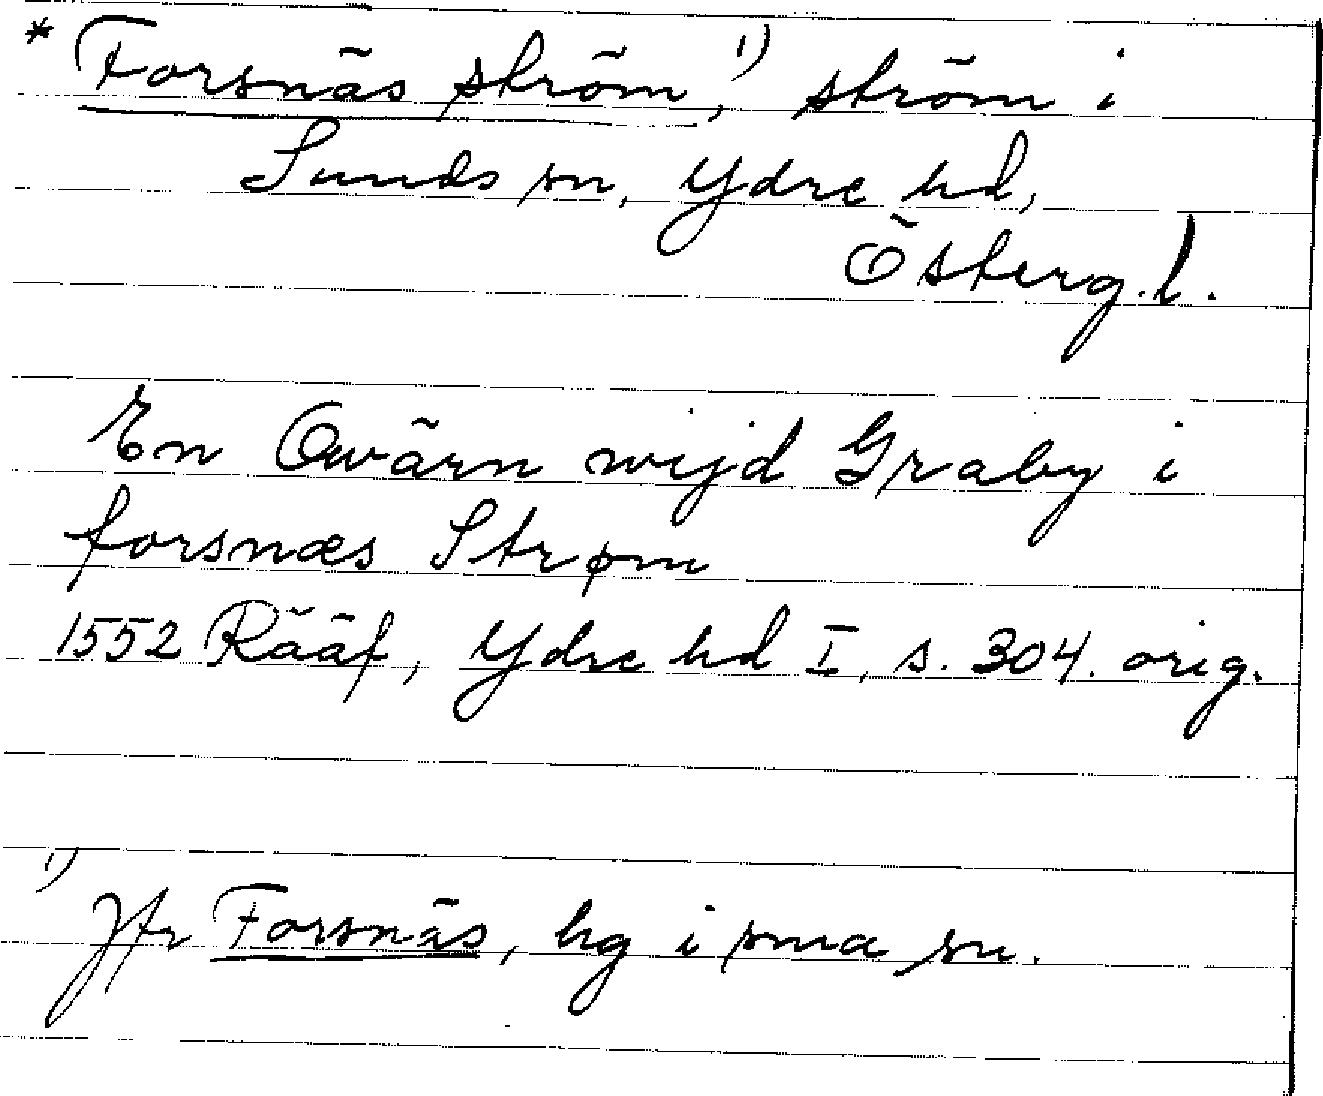 * Forsnäs ström,¹⁾ ström i
Sunds sn, Ydre hd,
Österg.l.
En Qwärn wijd Graby i
forsnæs Strøm
1552 Rääf, Ydre hd I, s. 304. orig.
¹⁾ Jfr Forsnäs, hg i sma sn.